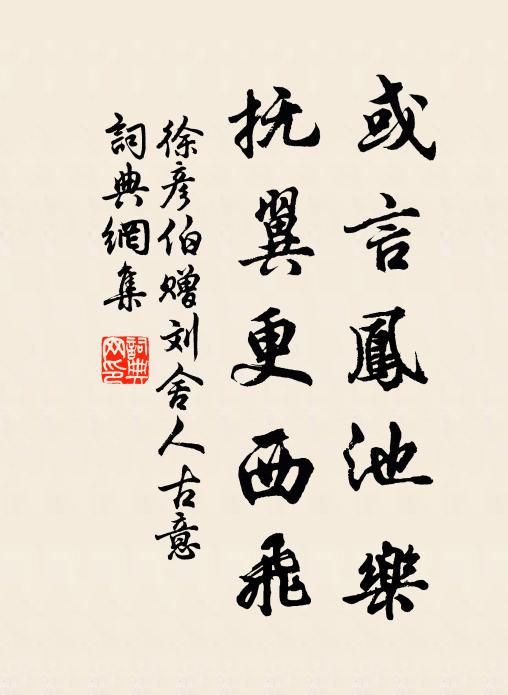 或言鳳池樂
抚翼更西飛
徐彦伯赠刘舍人古意
詞典網集
詞典網印